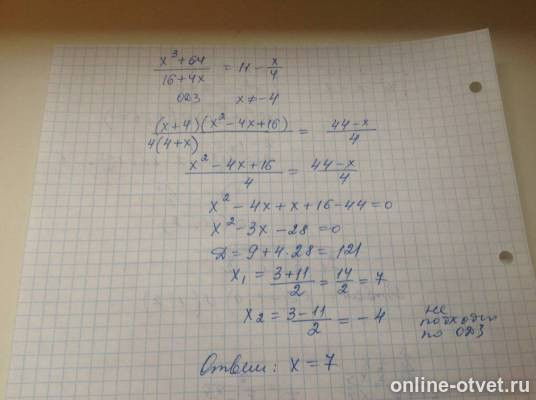 x³+64 / 16+4x = 11 - x/4
ОДЗ x≠-4
(x+4)(x²-4x+16) / 4(4+x) = 44-x / 4
x²-4x+16 / 4 = 44-x / 4
x²-4x+x+16-44=0
x²-3x-28=0
Д=9+4·28=121
x₁ = 3+11 / 2 = 14 / 2 = 7
x₂ = 3-11 / 2 = -4 не подходит по ОДЗ
Ответ: x=7
online-otvet.ru